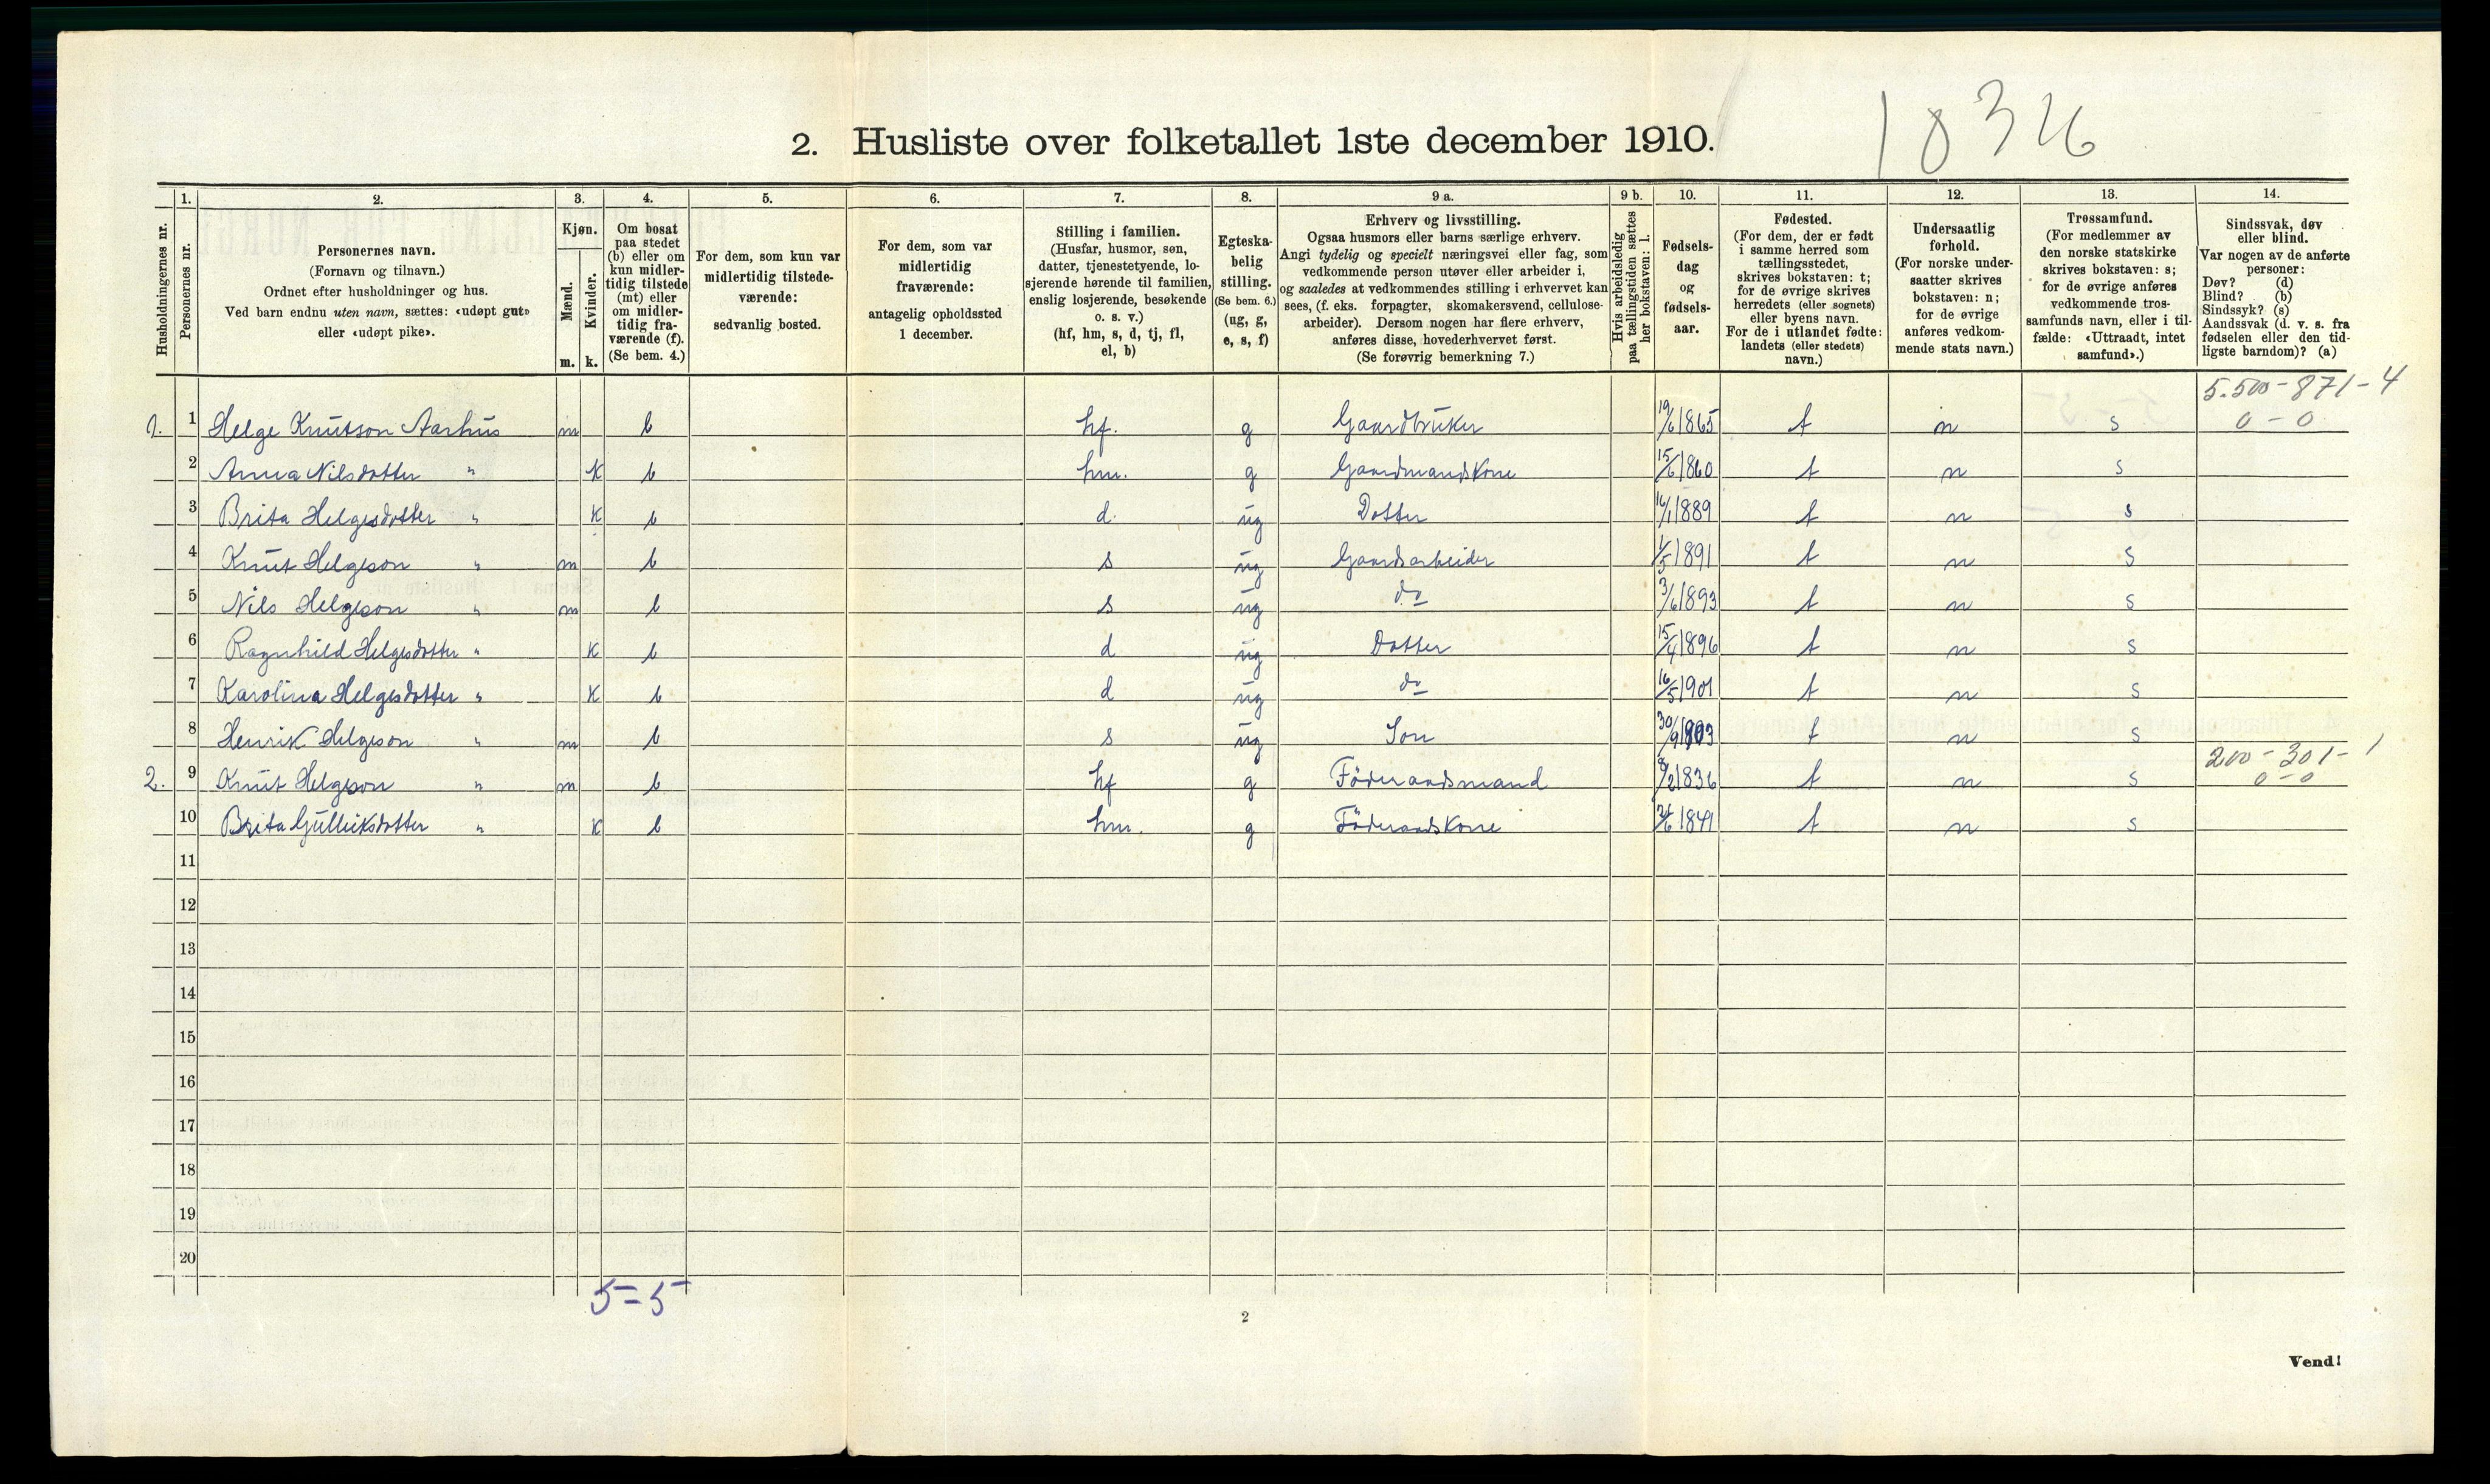 1836
2. Husliste over folketallet 1ste december 1910.
Husholdningernes nr.
1.
Personernes nr.
2.
Personernes navn.
(Fornavn og tilnavn.)
Ordnet efter husholdninger og hus.
Ved barn endnu uten navn, sættes: «udøpt gut»
eller «udøpt pike».
3.
Kjøn.
Mænd.
Kvinder.
m. k.
4.
Om bosat
paa stedet
(b) eller om
kun midler-
tidig tilstede
(mt) eller
om midler-
tidig fra-
værende (f).
(Se bem. 4.)
5.
For dem, som kun var
midlertidig tilstede-
værende:
sedvanlig bosted.
6.
For dem, som var
midlertidig
fraværende:
antagelig opholdssted
1 december.
7.
Stilling i familien.
(Husfar, husmor, søn,
datter, tjenestetyende, lo-
sjerende hørende til familien,
enslig losjerende, besøkende
o. s. v.)
(hf, hm, s, d, tj, fl,
el, b)
8.
Egteska-
belig
stilling.
(Se bem. 6.)
(ug, g,
e, s, f)
9 a.
Erhverv og livsstilling.
Ogsaa husmors eller barns særlige erhverv.
Angi tydelig og specielt næringsvei eller fag, som
vedkommende person utøver eller arbeider i,
og saaledes at vedkommendes stilling i erhvervet kan
sees, (f. eks. forpagter, skomakersvend, cellulose-
arbeider). Dersom nogen har flere erhverv,
anføres disse, hovederhvervet først.
(Se forøvrig bemerkning 7.)
9 b.
Hvis arbeidsledig
paa tællingstiden sættes
her bokstaven: l.
10.
Fødsels-
dag
og
fødsels-
aar.
11.
Fødested.
(For dem, der er født
i samme herred som
tællingsstedet,
skrives bokstaven: t;
for de øvrige skrives
herredets (eller sognets)
eller byens navn.
For de i utlandet fødte:
landets (eller stedets)
navn.)
12.
Undersaatlig
forhold.
(For norske under-
saatter skrives
bokstaven: n;
for de øvrige
anføres vedkom-
mende stats navn.)
13.
Trossamfund.
(For medlemmer av
den norske statskirke
skrives bokstaven: s;
for de øvrige anføres
vedkommende tros-
samfunds navn, eller i til-
fælde: «Uttraadt, intet
samfund».)
14.
Sindssvak, døv
eller blind.
Var nogen av de anførte
personer:
Døv? (d)
Blind? (b)
Sindssyk? (s)
Aandssvak (d. v. s. fra
fødselen eller den tid-
ligste barndom)? (a)
5.500-871-4
1. 1 Helge Knutson Aarhus m b hf. g Gaardbruker 19/6 1865 t n s 0-0
2 Anna Nilsdotter " k b hm. g Gaardmandskone 15/6 1860 t n s
3 Brita Helgesdotter " k b d. ug Dotter 16/1 1889 t n s
4 Knut Helgeson " m b s ug Gaardsarbeider 1/5 1891 t n s
5 Nils Helgeson " m b s ug do 3/6 1893 t n s
6 Ragnhild Helgesdotter " k b d ug Dotter 15/4 1896 t n s
7 Karolina Helgesdotter " k b d ug do 16/5 1901 t n s
8 Henrik Helgeson " m b s ug Son 30/9 1903 t n s
200-301-1
2. 9 Knut Helgeson " m b hf g Föderaadsmand /2 1836 t n s 0-0
10 Brita Gulleiksdotter " k b hm. g Föderaadskone /6 1841 t n s
11
12
13
14
15
16
17
18
19
20
5=5
2
Vend!